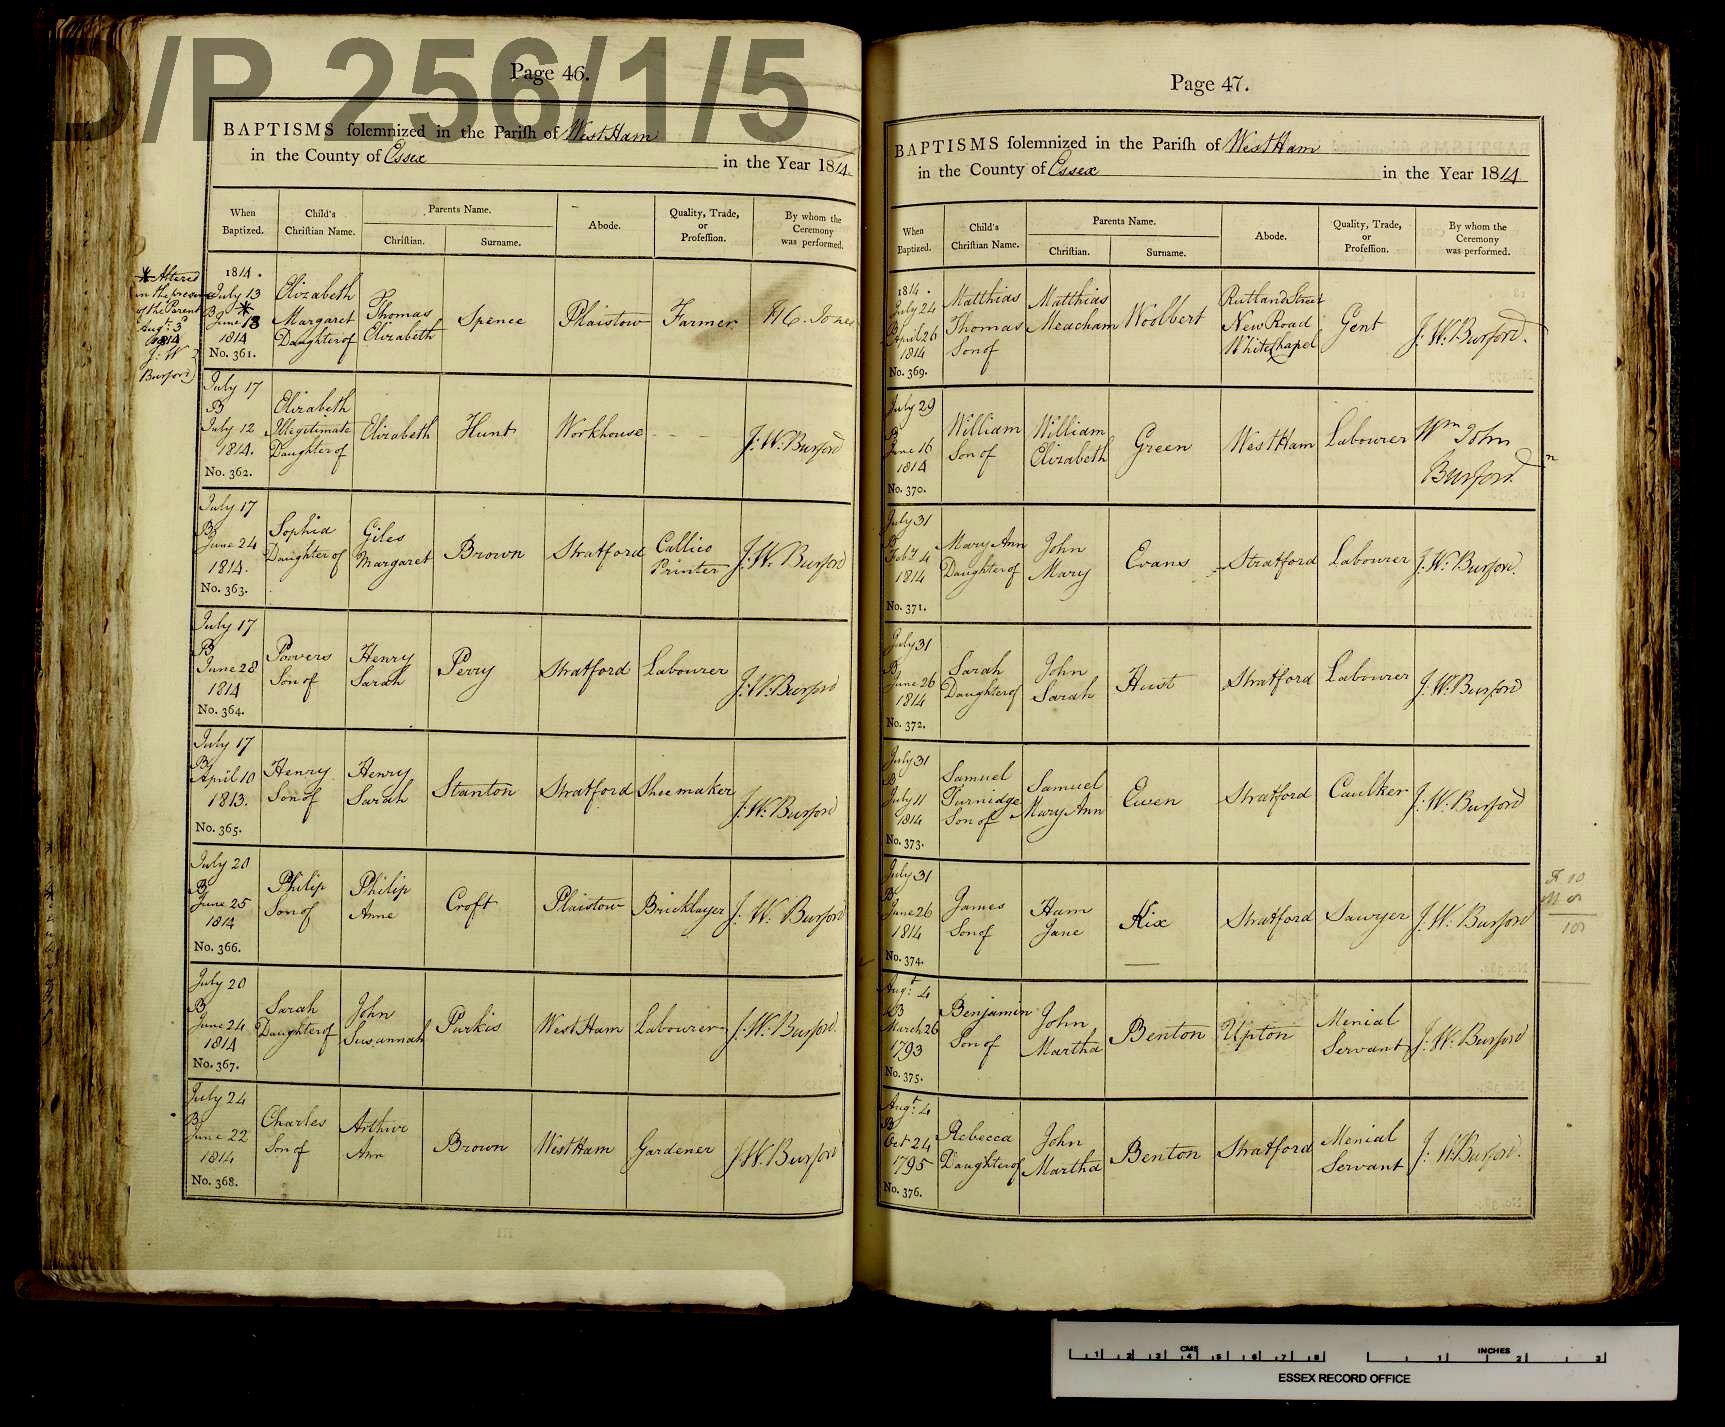 D/P 256/1/5
Page 46.
BAPTISMS solemnized in the Parish of West Ham
in the County of Essex in the Year 1814
When
Baptized.
Child's
Christian Name.
Parents Name.
Christian.
Surname.
Abode.
Quality, Trade,
or
Profession.
By whom the
Ceremony
was performed.
* Altered
in the presence
of the Parent
Augt. 3d
1814
J: W:
Burford
1814.
July 13
B *
June 13
1814
No. 361.
Elizabeth
Margaret
Daughter of
Thomas
Elizabeth
Spence
Plaistow
Farmer
Jones
July 17
B
July 12
1814.
No. 362.
Elizabeth
Illegitimate
Daughter of
Elizabeth
Hunt
Workhouse
J: W: Burford
July 17
B
June 24
1814.
No. 363.
Sophia
Daughter of
Giles
Margaret
Brown
Stratford
Callico
Printer
J: W: Burford
July 17
B
June 28
1814
No. 364.
Poovers
Son of
Henry
Sarah
Perry
Stratford
Labourer
J: W: Burford
July 17
B
April 10
1813.
No. 365.
Henry
Son of
Henry
Sarah
Stanton
Stratford
Shoemaker
J: W: Burford
July 20
B
June 25
1814
No. 366.
Philip
Son of
Philip
Anne
Croft
Plaistow
Bricklayer
J: W: Burford
July 20
B
June 24
1814
No. 367.
Sarah
Daughter of
John
Susannah
Purkis
West Ham
Labourer
J: W: Burford.
July 24
B
June 22
1814
No. 368.
Charles
Son of
Arthur
Ann
Brown
West Ham
Gardener
J: W: Burford
Page 47.
BAPTISMS solemnized in the Parish of West Ham
in the County of Essex in the Year 1814
When
Baptized.
Child's
Christian Name.
Parents Name.
Christian.
Surname.
Abode.
Quality, Trade,
or
Profession.
By whom the
Ceremony
was performed.
1814.
July 24
B
April 26
1814
No. 369.
Matthias
Thomas
Son of
Matthias
Meacham
Woolbert
Rutland Street
New Road
White Chapel
Gent
J: W: Burford.
July 29
B
June 16
1814
No. 370.
William
Son of
William
Elizabeth
Green
West Ham
Labourer
Wm John
Burford
July 31
B
Feby 4
1814
No. 371.
Mary Ann
Daughter of
John
Mary
Evans
Stratford
Labourer
J: W: Burford.
July 31
B
June 26
1814
No. 372.
Sarah
Daughter of
John
Sarah
Hust
Stratford
Labourer
J: W: Burford
July 31
B
July 11
1814
No. 373.
Samuel
Turnidge
Son of
Samuel
Mary Ann
Ewen
Stratford
Caulker
J: W: Burford
July 31
B
June 26
1814
No. 374.
James
Son of
Ham
Jane
Hix
Stratford
Sawyer
J: W: Burford
Augt. 4
B
March 26
1793
No. 375.
Benjamin
Son of
John
Martha
Benton
Upton
Menial
Servant
J: W: Burford
Augt. 4
B
Oct 24
1795
No. 376.
Rebecca
Daughter of
John
Martha
Benton
Stratford
Menial
Servant
J: W: Burford.
CMS
1 2 3 4 5 6 7 8
INCHES
1 2 3
ESSEX RECORD OFFICE